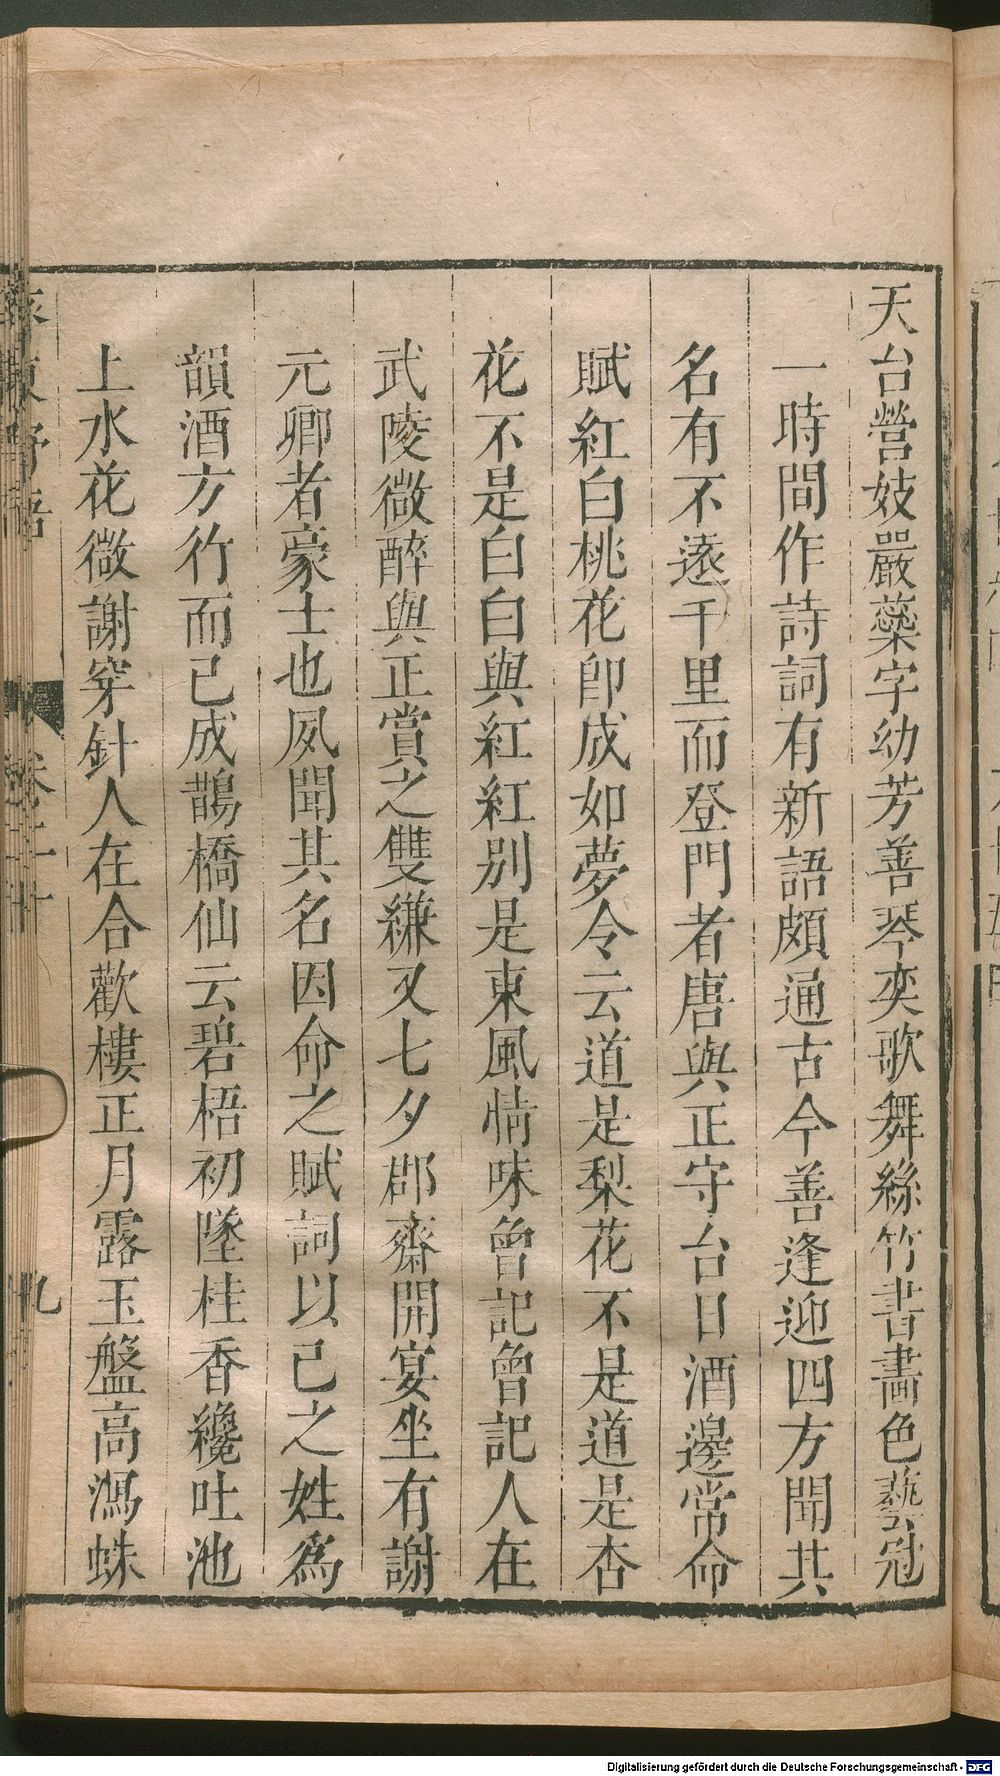 天台營妓嚴蘂字幼芳善琴奕歌舞絲竹書畵色藝冠
一時間作詩詞有新語頗通古今善逢迎四方聞其
名有不遠千里而登門者唐與正守台日酒邊常命
賦紅白桃花卽成如夢令云道是梨花不是道是杏
花不是白白與紅紅別是東風情味曾記曾記人在
武陵微醉與正賞之雙縑又七夕郡齋開宴坐有謝
元卿者豪士也夙聞其名因命之賦詞以己之姓爲
韻酒方行而已成鵲橋仙云碧梧初墜桂香纔吐池
上水花微謝穿針人在合歡樓正月露玉盤高瀉蛛
東野語
卷二十
九
Digitalisierung gefördert durch die Deutsche Forschungsgemeinschaft - DFG